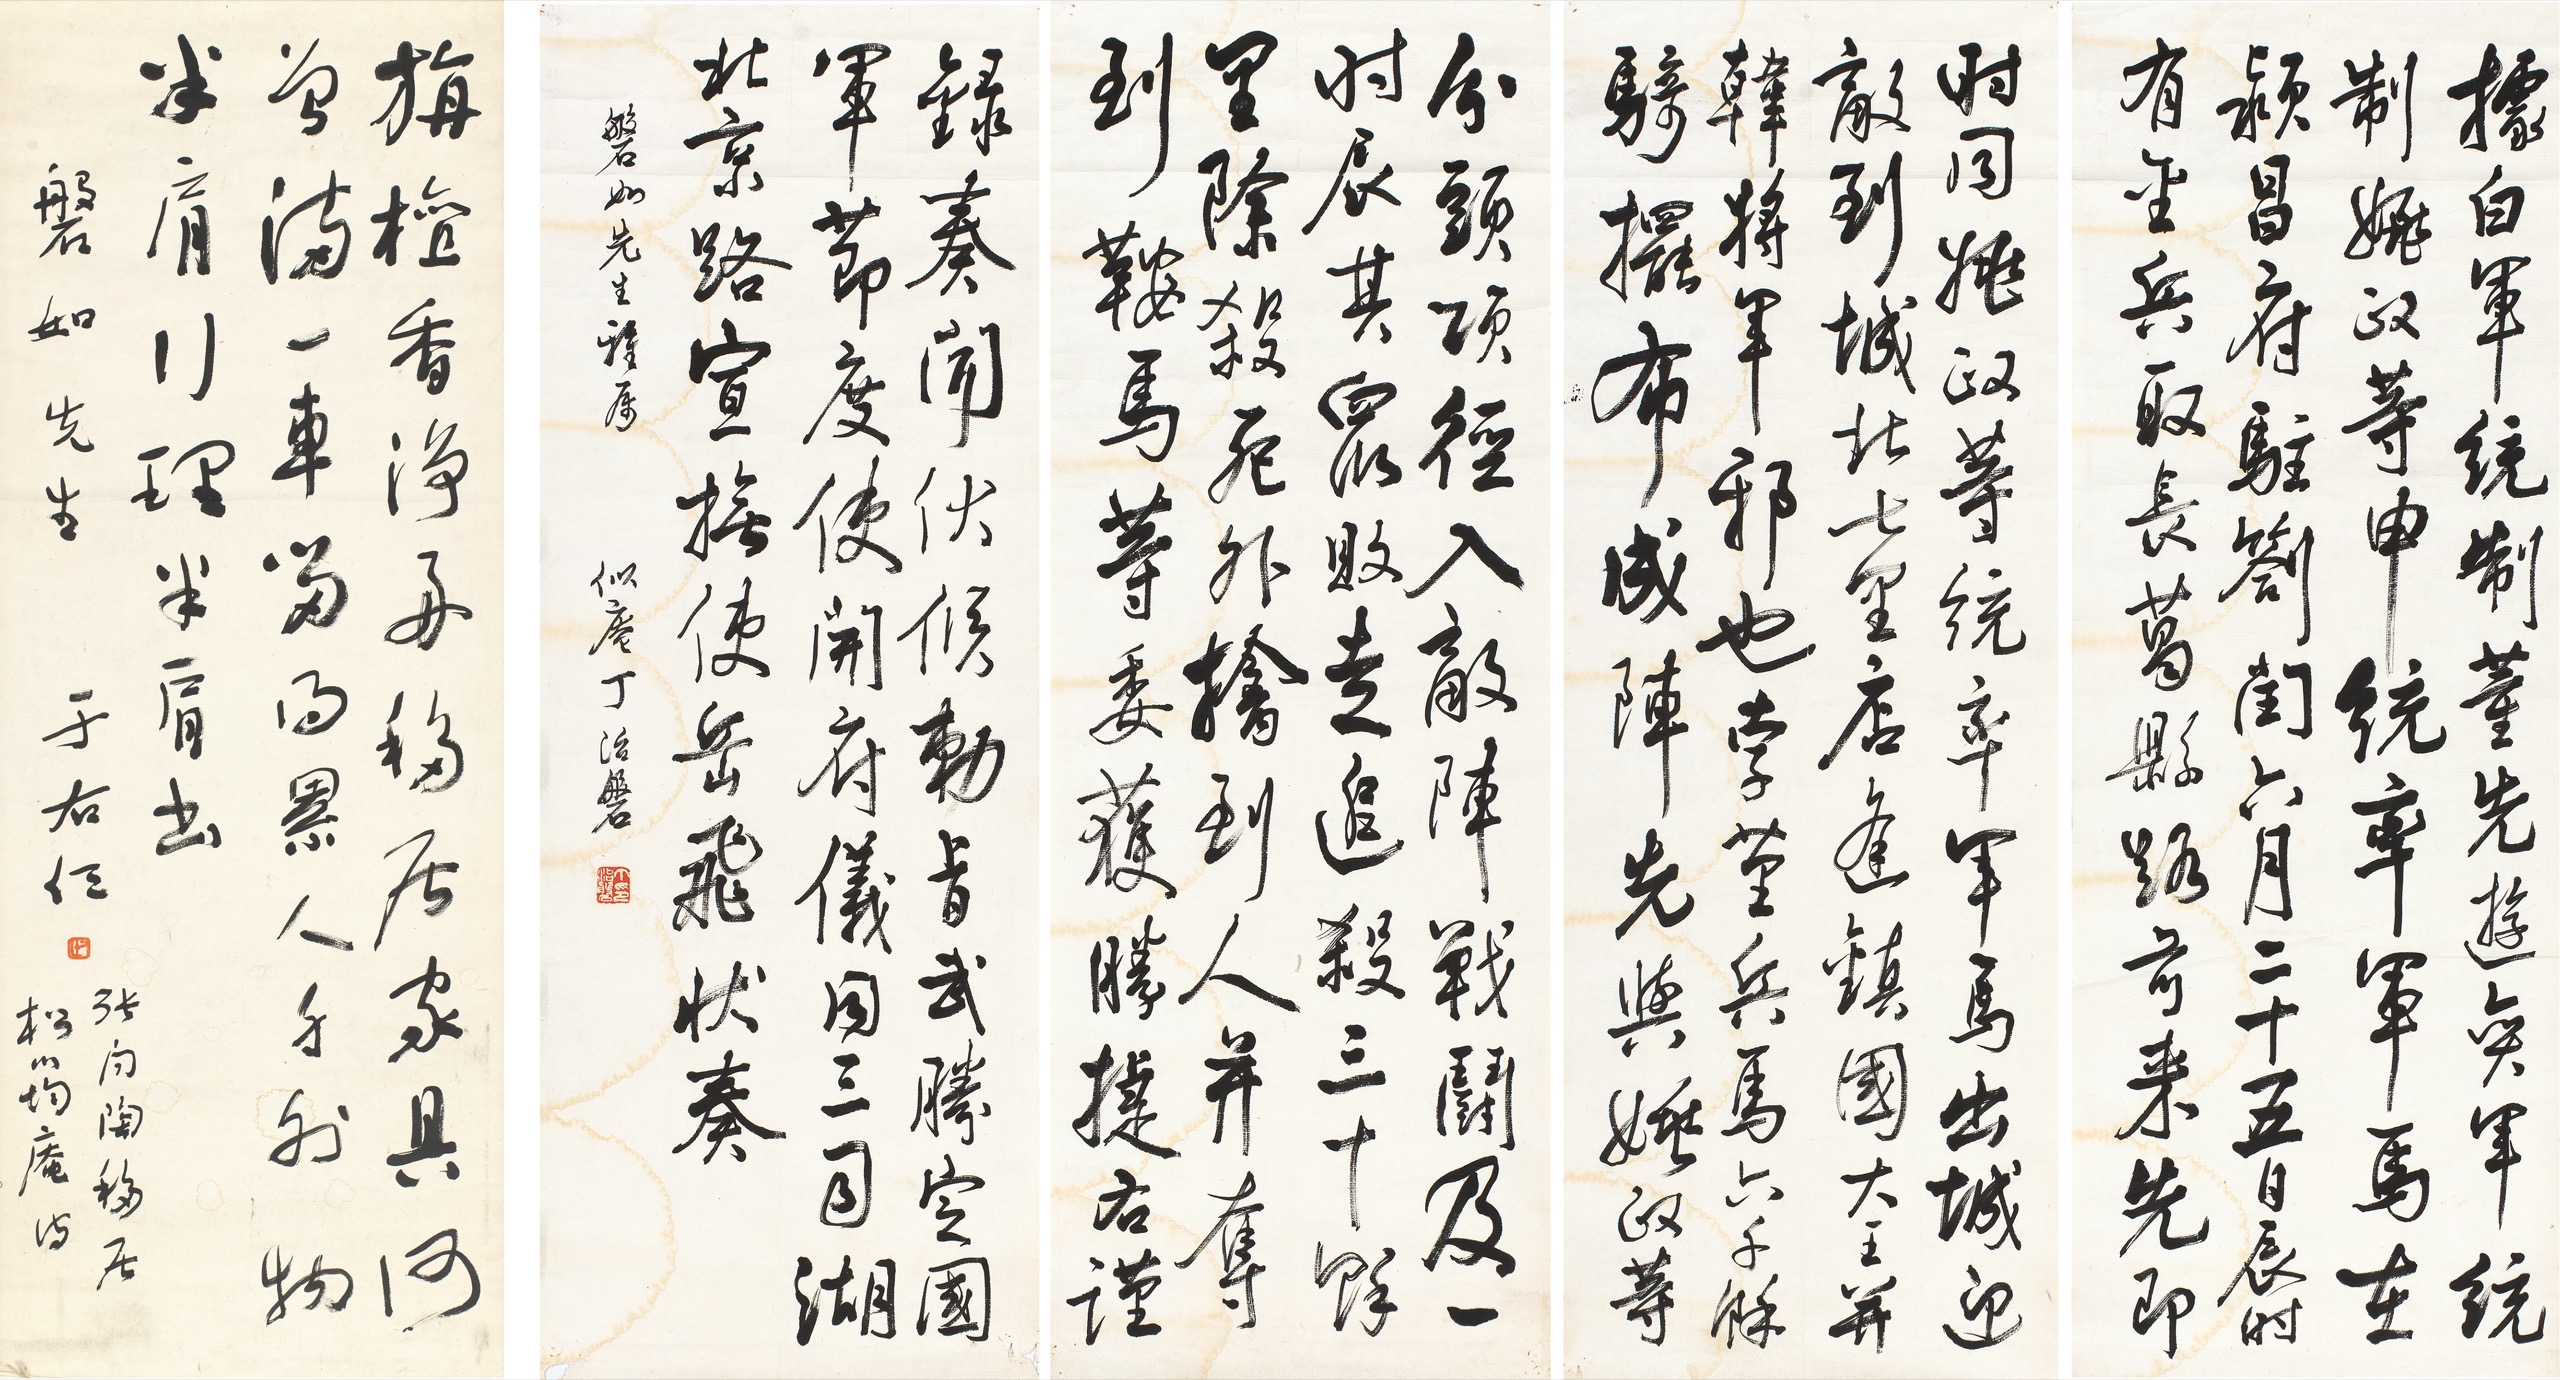 據白軍統制董先遊奕軍統
制姚政等申統率軍馬在
潁昌府駐劄閏六月二十五日辰時
有金兵取長葛縣路前來先即
时同姚政等統率軍馬出城迎
敵到城北七里店逢鎮國大王并
韓將軍邪也孛堇兵馬六千餘
騎擺布成陣先與姚政等
分頭項徑入敵陣戰鬪及一
时辰其眾敗走追殺三十餘
里除殺死外擒到人并奪
到鞍馬等委獲勝捷右謹
錄奏聞伏候勅旨武勝定國
軍節度使開府儀同三司湖
北京路宣撫使岳飛狀奏
磐如先生雅属
似庵丁治磐
旃檀香淨再移居家具何
曾滿一車留得累人身外物
半肩行理半肩书
磐如先生
于右任
張向陶移居
松小均庵诗